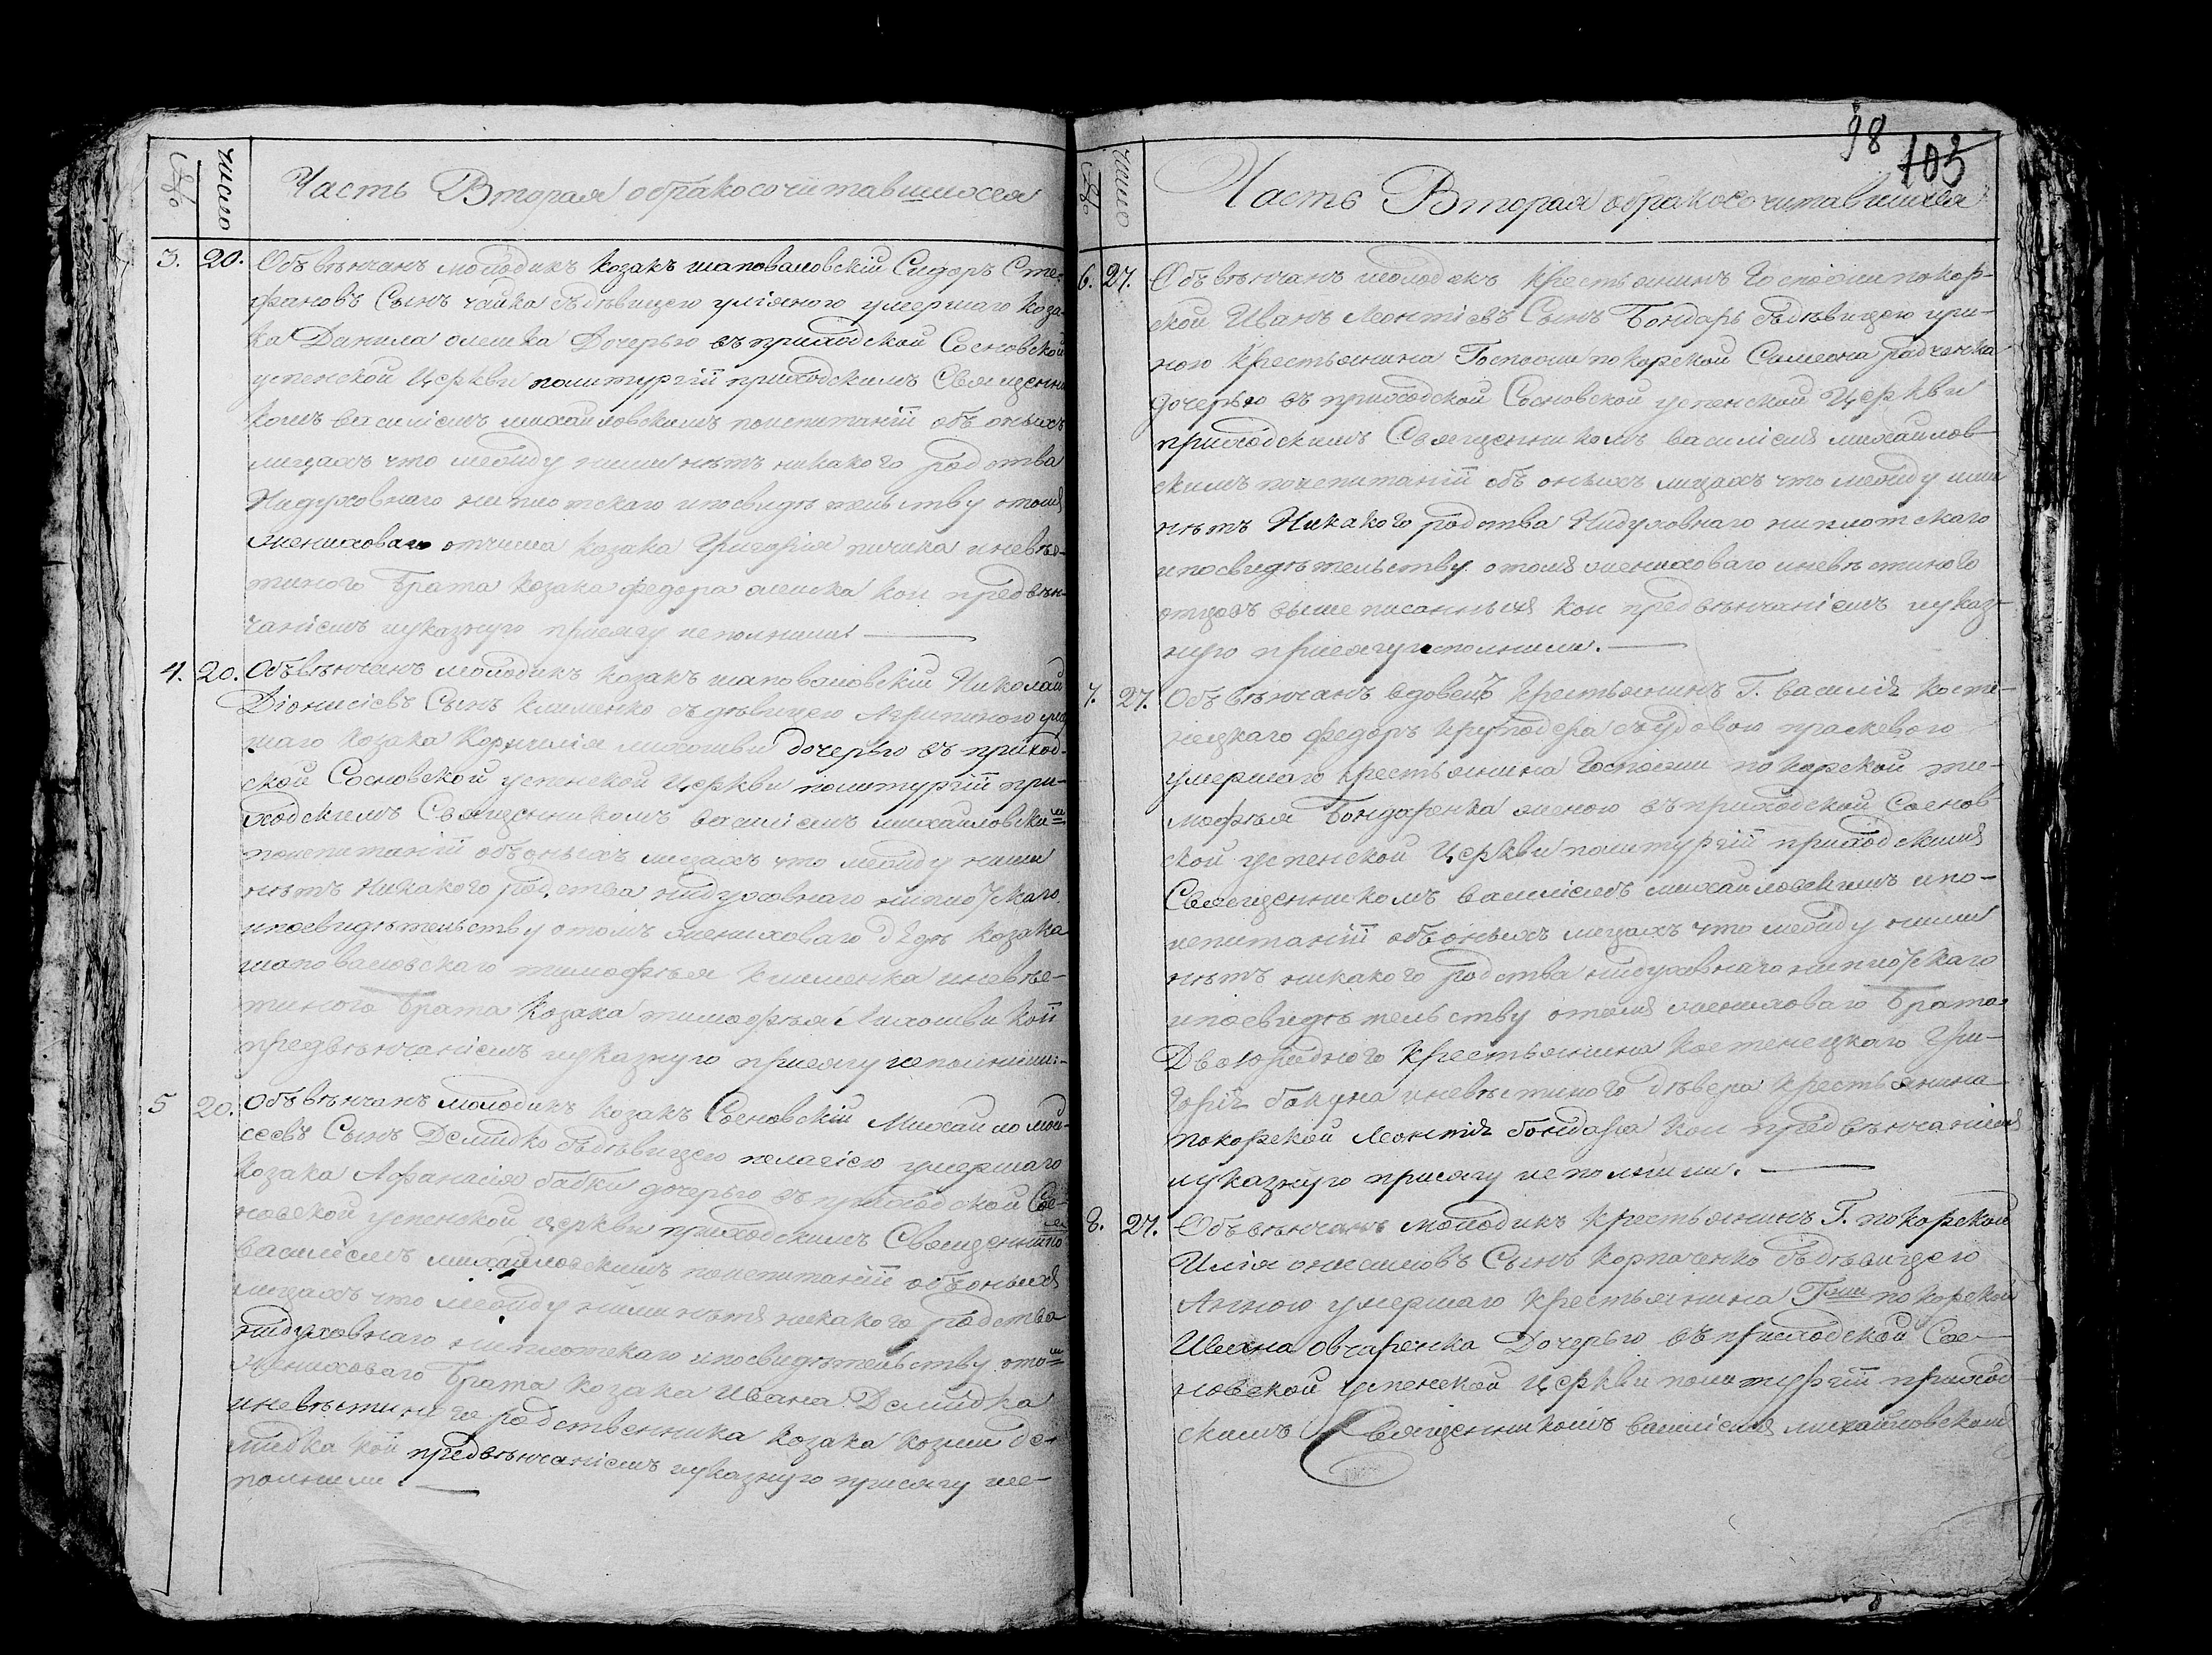 №
число
Часть Вторая обракосочитавшихся
3. 20. Объвѣнчанъ молодикъ козакъ шаповаловскій Сидоръ Сте-
фановъ Сынъ чайка здѣвицею уліяною умершаго коза-
ка Данила олешка Дочерью въ приходской Сосновской
успенской Церкви политургіи приходскимъ Священни
комъ василіемъ михайловскимъ поиспитаніи объ оныхъ
лицахъ что между ними нѣтъ никакого родства
Нидуховнаго ниплотскаго ипосвидѣтельству отомъ
женихового отчима козака Григорія иневѣ-
стиного брата козака федора олешка кои предвѣн-
чаніемъ иуказную присягу исполнили
4. 20. Объвѣнчанъ молодикъ козакъ шаповаловскій Николай
Діонисіевъ Сынъ клименко здѣвицею Агрипиною умер
шаго козака Корнилія дочерью въ приход-
ской Сосновской успенской Церкви политургіи при-
ходскимъ Священникомъ василіемъ михайловским
поиспитаніи объоныхъ лицахъ что между ними
нѣтъ Никакого родства нидуховнаго ниплотскаго
ипосвидѣтельству отомъ женихового дядѣ козака
шаповаловскаго тимофѣя клименка иневѣ-
стиного брата козака тимофѣя кои
предвѣнчаніемъ иуказную присягу исполнили
5 20. Объвѣнчанъ молодикъ козакъ Сосновскій Михайло мои-
сеевъ Сынъ Демидко здѣвицею пелагіею умершаго
козака Афанасія бабки дочерью въ приходской Сос-
новской успенской церкви приходскимъ Священнико
василіемъ михайловскимъ поиспитаніи объоныхъ
лицахъ что между ними нѣтъ никакого родства
нидуховнаго ниплотскаго ипосвидѣтельству отом
женихового брата козака Ивана Демидка
иневѣстиного родственника козака козми де-
мидка кои предвѣнчаніемъ иуказную присягу ис-
полнили
98
103
№
число
Часть Вторая обракосочитавшихся
6. 27. Объвѣнчанъ молодикъ крестьянинъ Госпожи покор-
ской Иванъ Леонтіевъ Сынъ Бондарь здѣвицею ири-
ною крестьянина Госпожи покорской Симеона радченка
дочерью въ приходской Сосновской успенской Церкви
приходскимъ Священникомъ василіемъ михайлов-
скимъ поиспитаніи объ оныхъ лицахъ что между ими
нѣтъ Никакого родства Нидуховнаго ниплотскаго
ипосвидѣтельству отомъ женихового иневѣстиного
отцовъ вышеписанныхъ кои предвѣнчаніемъ иуказ-
ную присягу исполнили.
7. 27. Объвѣнчанъ вдовецъ крестьянинъ Г. василія косте-
нецкаго федоръ крутодера съвдовою праскевою
умершаго крестьянина Госпожи покорской ти-
мофѣя Бондаренка женою въ приходской Соснов
ской успенской Церкви политургіи приходскимъ
Священникомъ василіемъ михайловскимъ ипо-
испитаніи объоныхъ лицахъ что между ними
нѣтъ никакого родства нидуховнаго ниплотскаго
ипосвидѣтельству отомъ женихового Брата
Двоюродного крестьянина костенецкаго Гри-
горія бакуна иневѣстиного дѣвера крестьянина
покорской Леонтія бондаря кои предвѣнчаніемъ
иуказную присягу исполнили.
8. 27. Объвѣнчанъ молодикъ крестьянинъ Г. покорской
Илія онисимовъ Сынъ корпаченко здѣвицею
Анною умершаго крестьянина Гжи покорской
Ивана овчаренка Дочерью въ приходской Сос-
новской успенской Церкви политургіи приход-
скимъ Священникомъ василіемъ михайловским